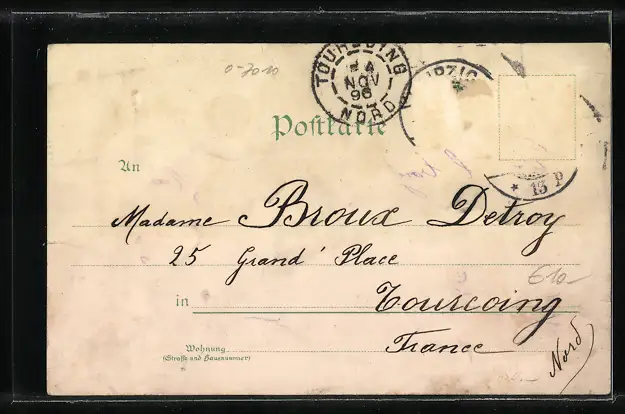 0-7010
TOURCOING
NOV
96
NORD
Postkarte
* 13 P
An
Madame Broux Detroy
25 Grand' Place
in Tourcoing
Wohnung
(Straße und Hausnummer)
France
Nord